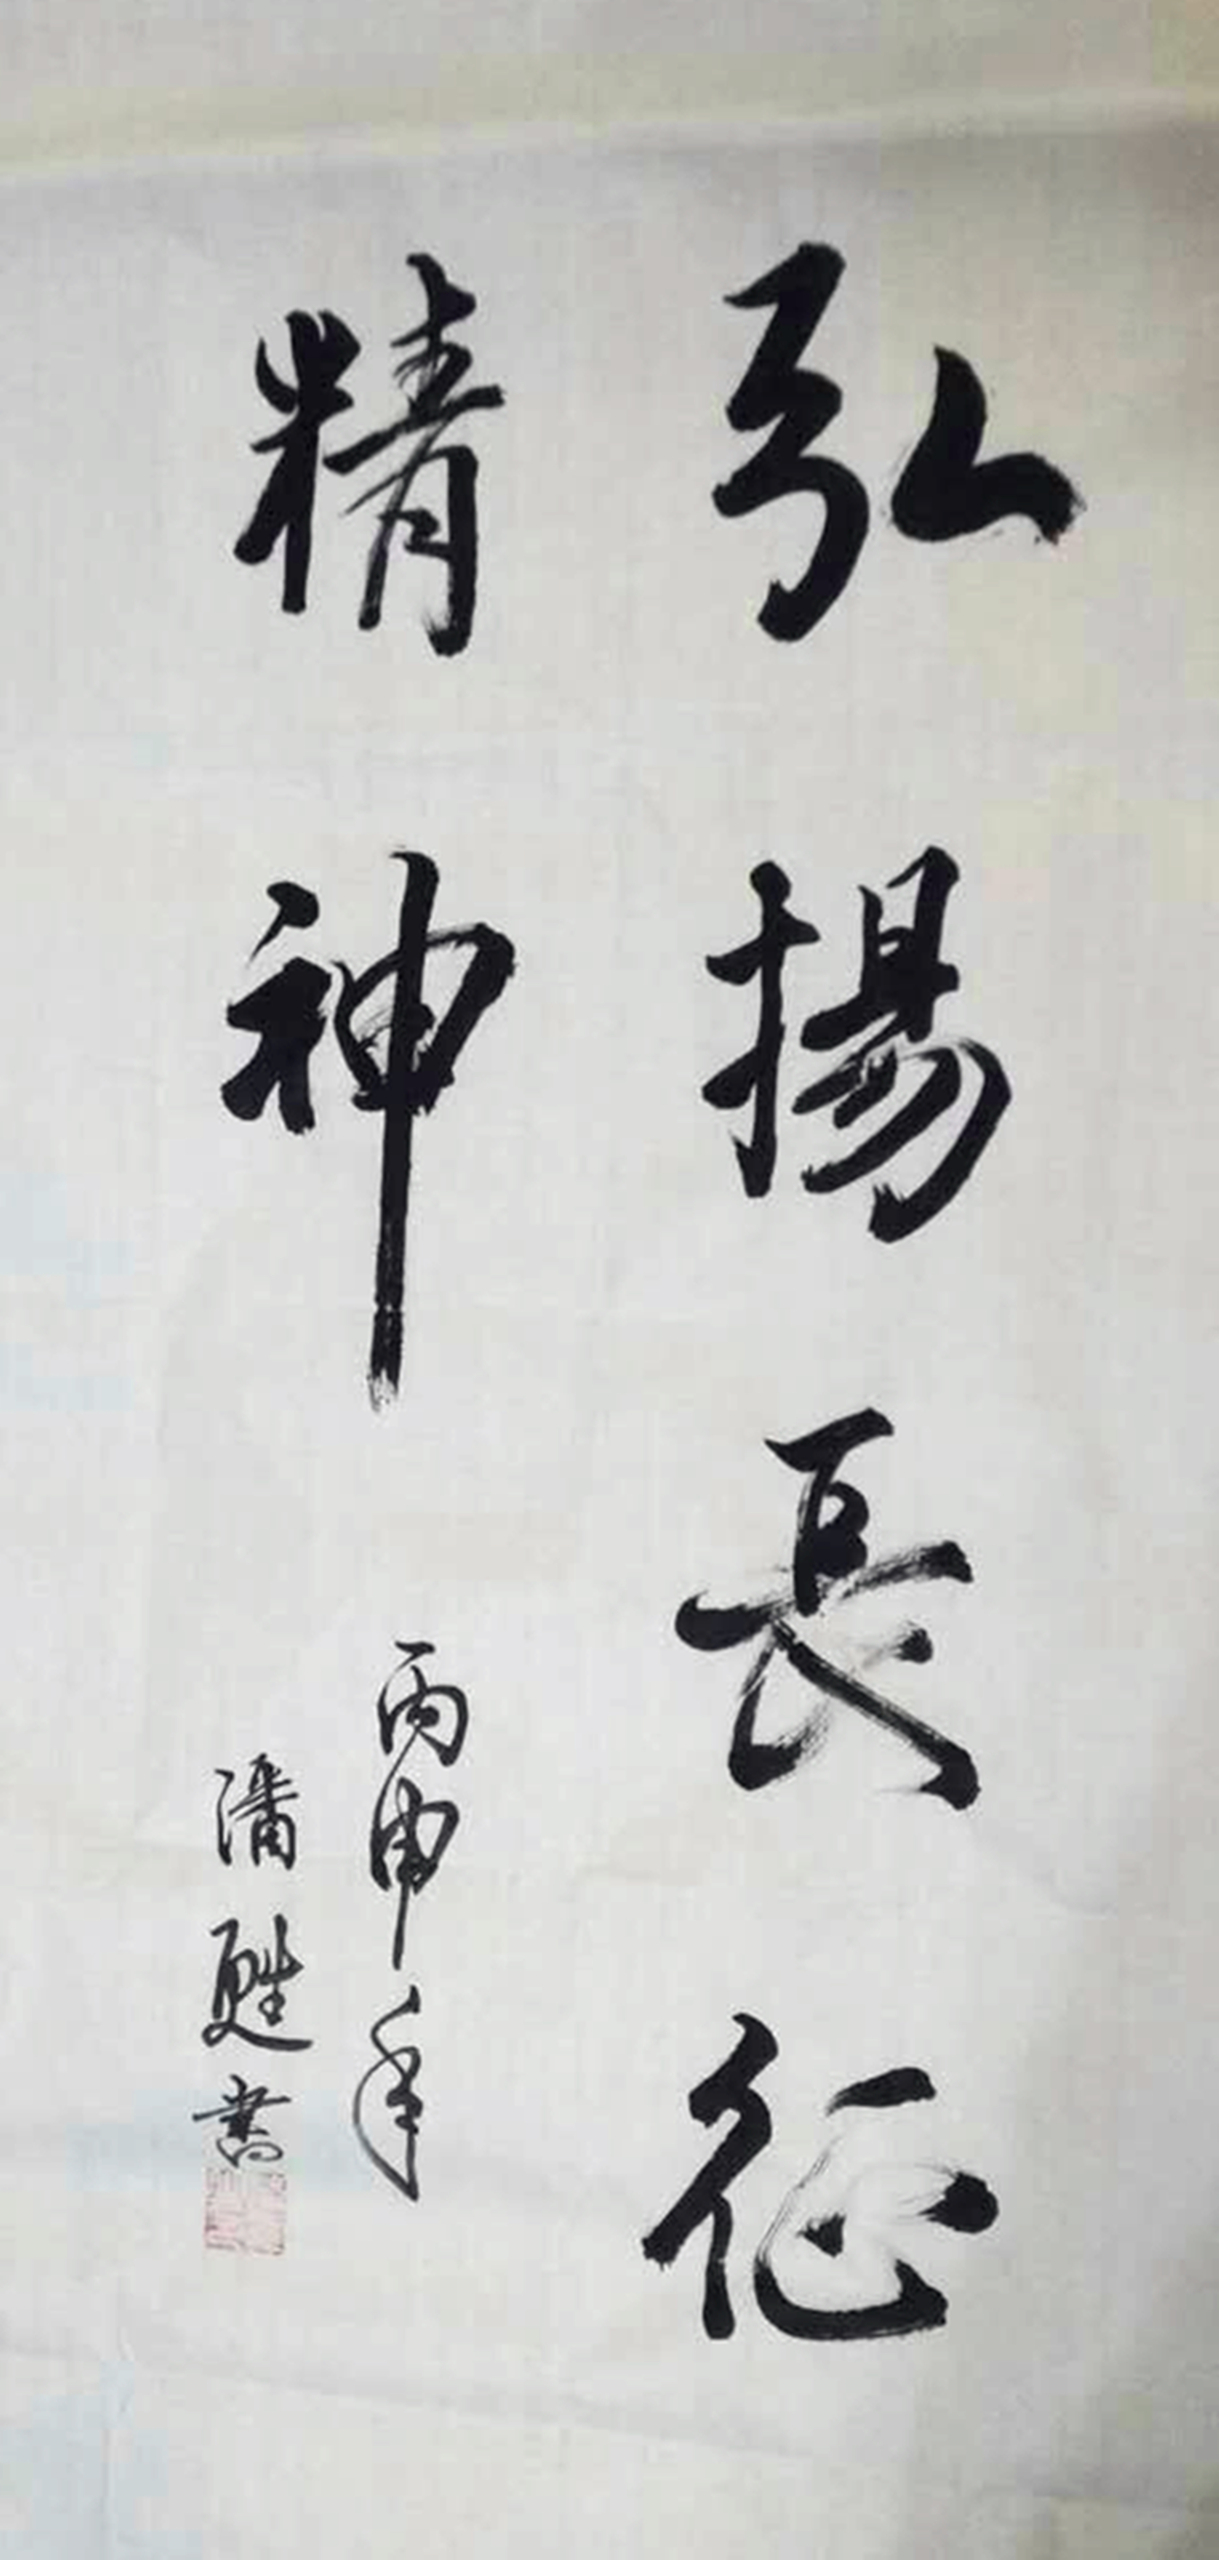 弘揚長征
精神
丙申年
潘甦書